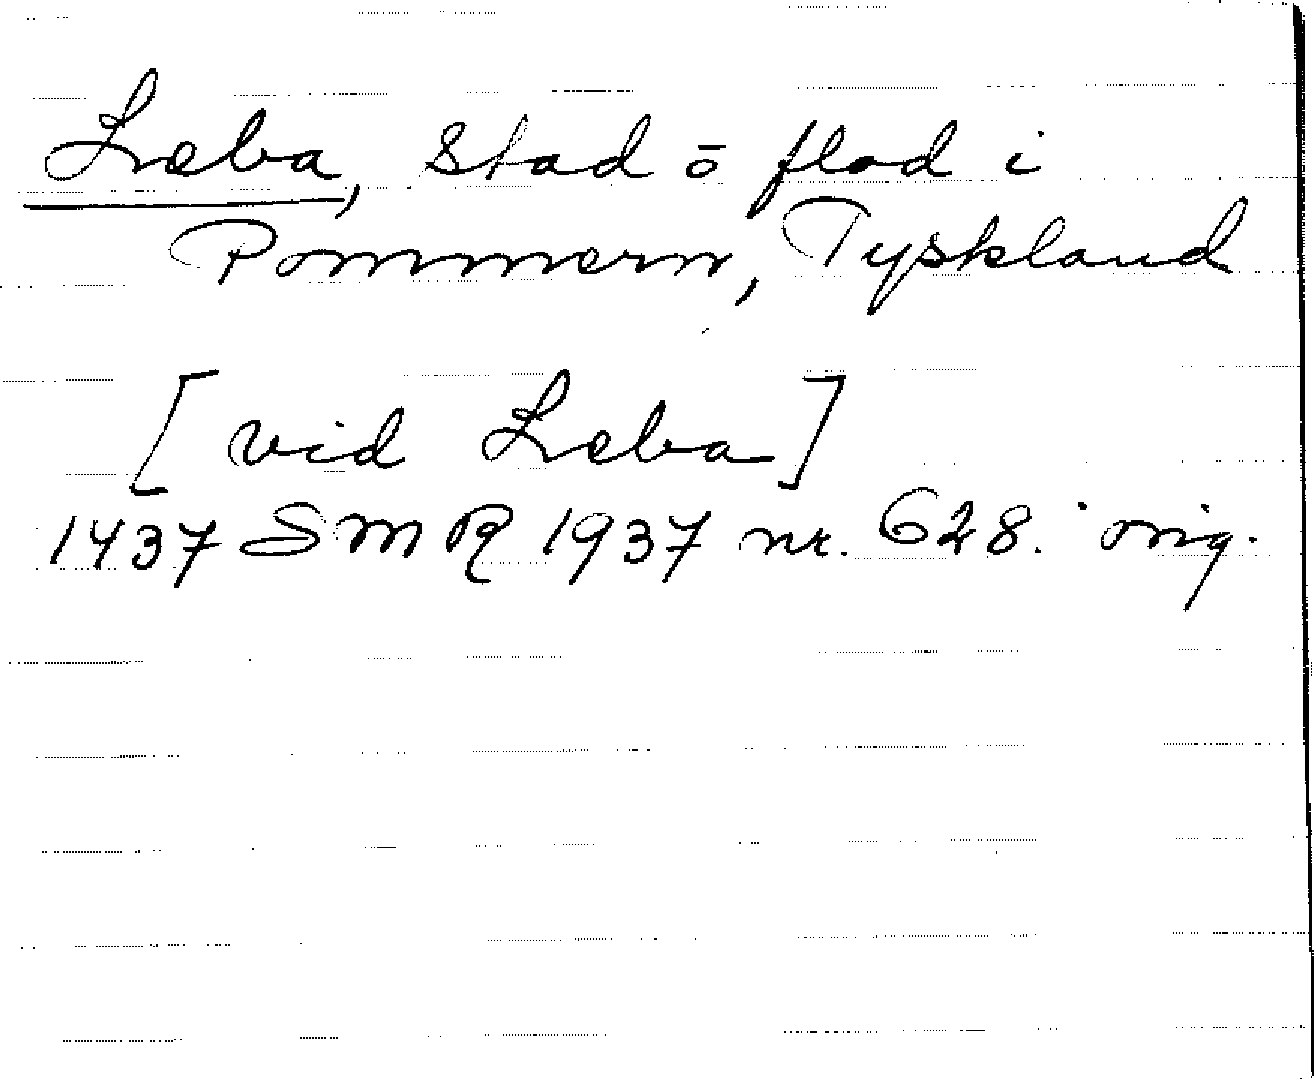 Leba, stad ō flod i
Pommern, Tyskland
[vid Leba]
1437 SMR 1937 nr. 628. orig.